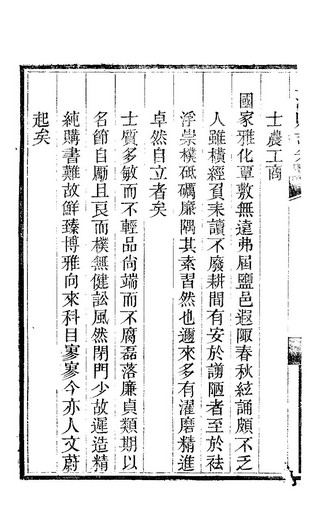 士農工商
國家雅化覃敷無遠弗屆鹽邑遐陬春秋絃誦頗不乏
人雖橫經負耒讀不廢耕間有安於譾陋者至於祛
浮崇樸砥礪廉隅其素習然也邇來多有濯磨精進
卓然自立者矣
士質多敏而不輕品尙端而不腐磊落廉貞類期以
名節自勵且畏而樸無健訟風然閉門少故遲造精
純購書難故鮮臻博雅向來科目寥寥今亦人文蔚
起矣